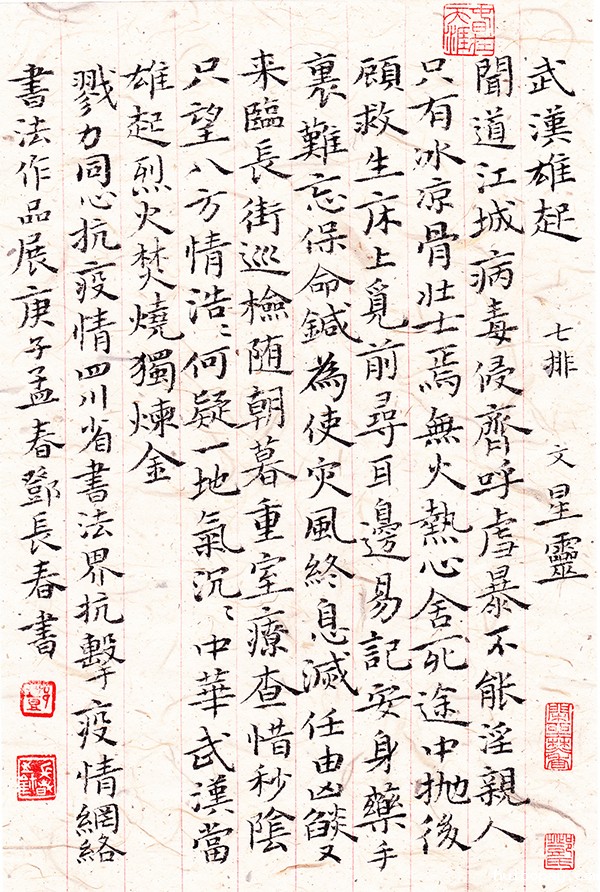 武漢雄起 七排 文星靈
聞道江城病毒侵齊呼虐暴不能淫親人
只有冰凉骨壯士焉無火熱心舍死途中抛後
顧救生床上覓前尋耳邊易記安身藥手
裏難忘保命鍼為使灾風終息滅任由凶燄又
来臨長街巡檢随朝暮重室療查惜秒陰
只望八方情浩〻何疑一地氣沉〻中華武漢當
雄起烈火焚燒獨煉金
戮力同心抗疫情四川省書法界抗擊疫情網絡
書法作品展庚子孟春鄧長春書